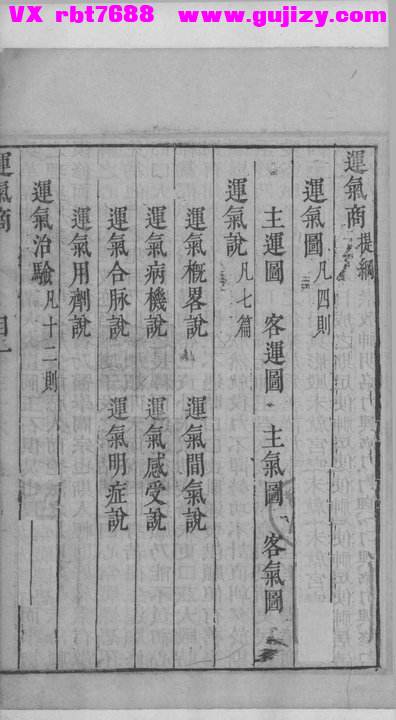 VX rbt7688 www.gujizy.com
運氣商提綱
運氣圖凡四則
主運圖 客運圖 主氣圖 客氣圖
運氣說凡七篇
運氣槪畧說 運氣間氣說
運氣病機說 運氣感受說
運氣合脉說 運氣明症說
運氣用劑說
運氣治驗凡十二則
運氣商 目一